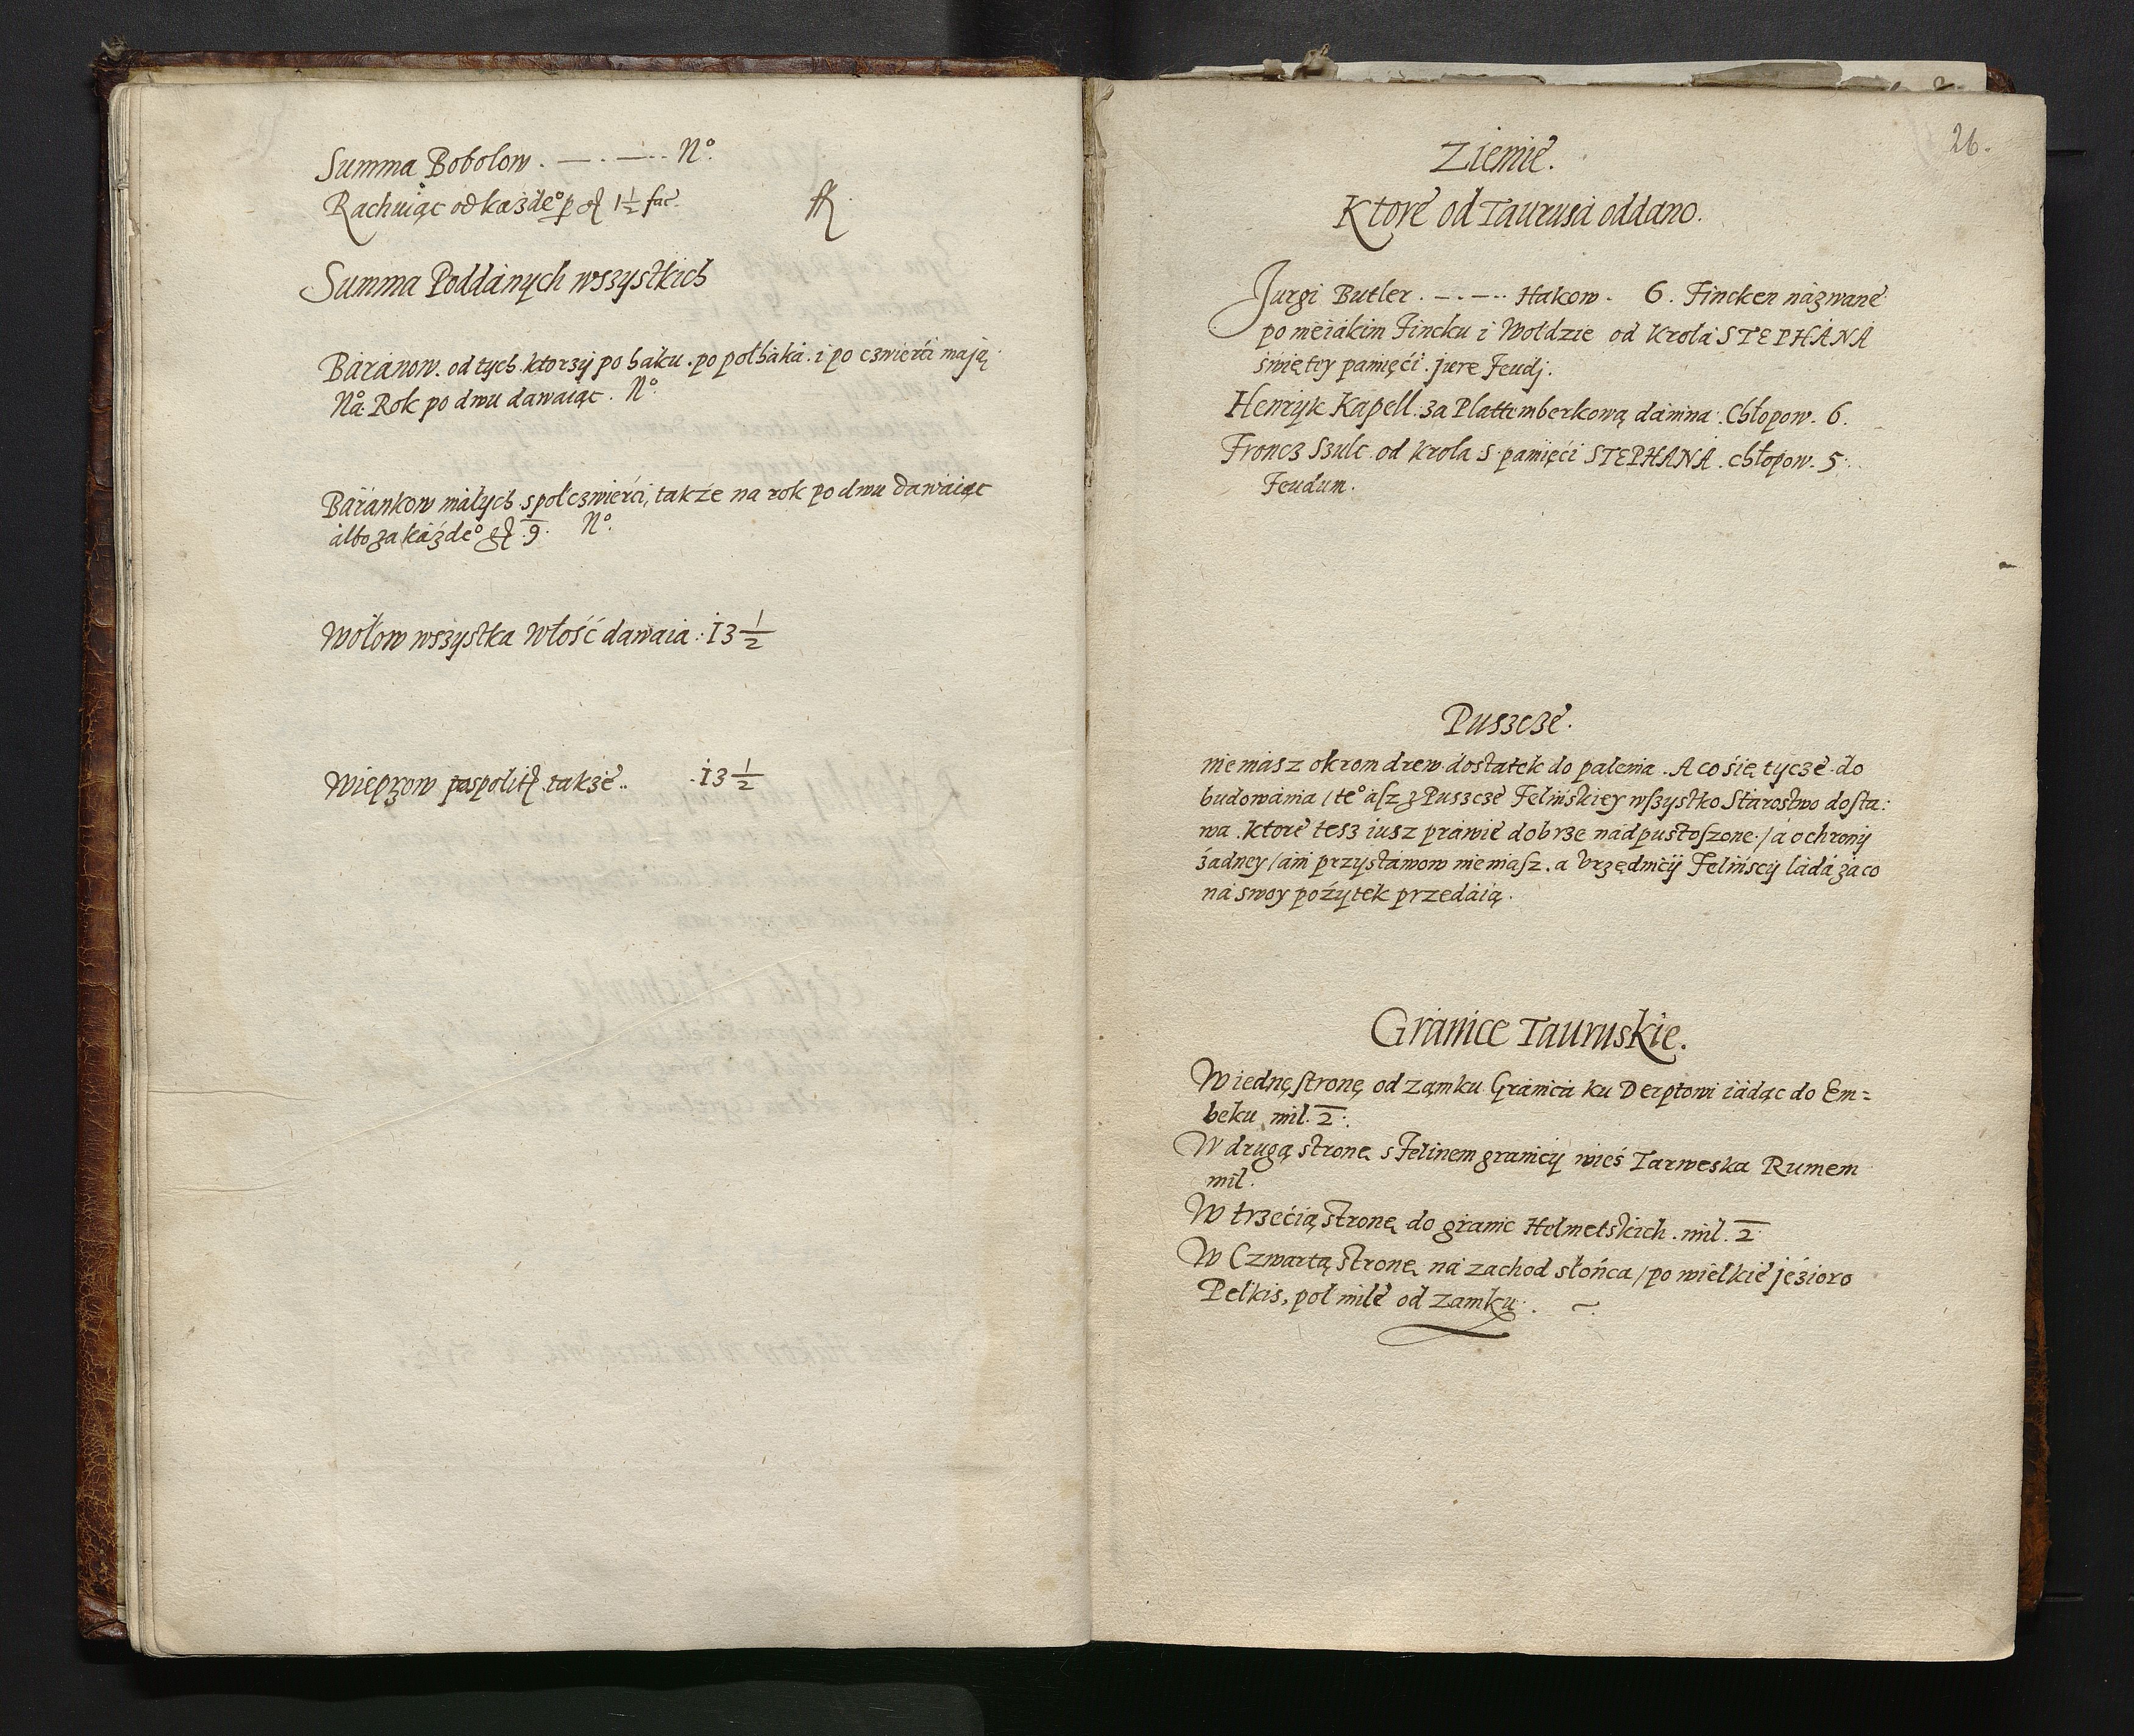 Summa Bobolow . — . — . . N°.
Rachuiąc od każde° p 1½ fac.
Summa Poddánych wszystkich
Báránow . od tych . ktorzÿ po háku . po połháká . i po czwierći mają .
Ná Rok po dwu dawaiąc . N°.
Báránkow máłych społczwierći, takźe na rok po dwu dawaiąc
álbo za káżde° 9 . N°.
Wołow wszystka Włość dawaia . 13½
Wieprzow pospolit także . . 13½
26.
Ziemie.
Ktore od Taurusá oddano.
Jurgi Butler . — . — . . Hakow . 6 . Fincken názwane
po nieiákim Fincku i Wołdzie od Krolá STEPHANA
świętey pamięći . jure Feudj .
Henryk Kapell . za Plattemberkową dánina . Chłopow . 6 .
Froncz Szulc . od krola S . pamięći STEPHANA . chłopow . 5 .
Feudum .
Puszcze .
nie mász okrom drew dostátek do palenia . A co się tycze do
budowánia / te° ász z Puszcze Felińskiey wszystko Stárostwo dosta:
wa . ktore tesz iusz práwie dobrze nádpustoszone . / á ochrony
żadney / áni przystáwow nie masz . a Vrzędnicÿ Felinscÿ ládá zá co
ná swoy pożytek przedáią .
Gránice Tauruskie .
W iednę stronę od zamku Gránicá ku Derptowi iádąc do Em=
beku mil . 2 .
W drugą stronę s Felinem granicÿ wieś Tarweska Rumem
mil .
W trzećią stronę do gránic Helmetskich . mil . 2
W Czwartą stronę ná zachod słońca / po wielkie jeźioro
Pełkis, poł mile od zamku .